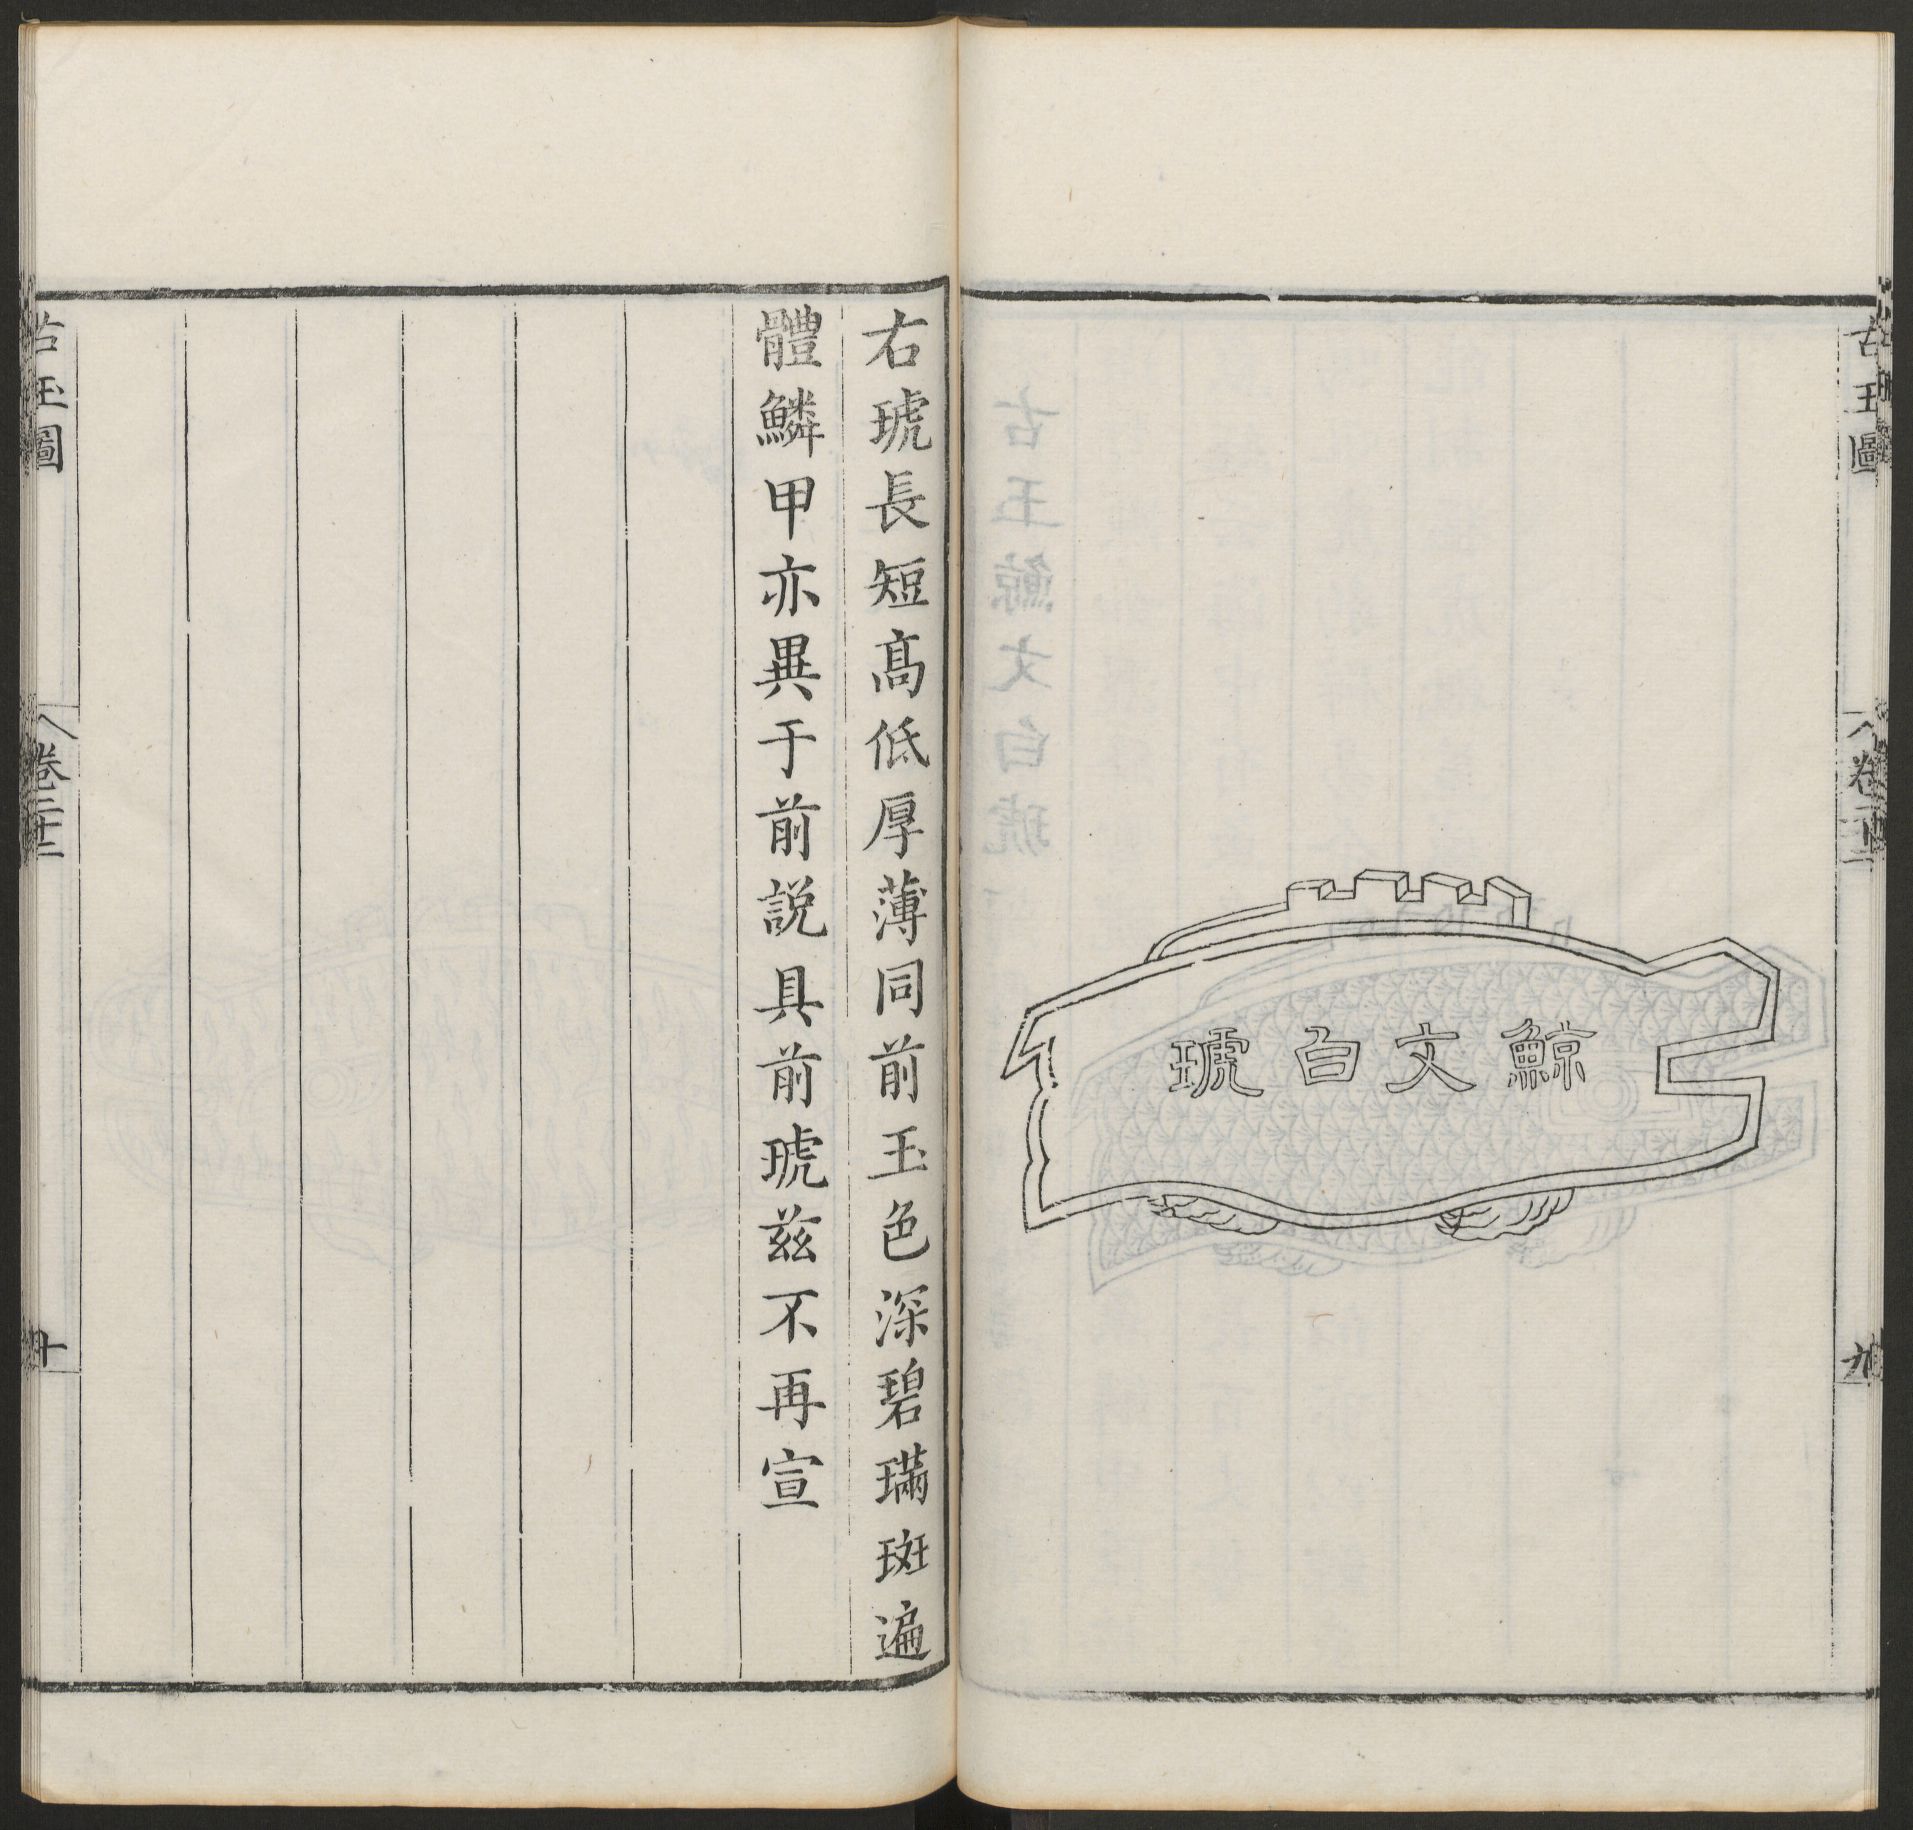 古玉圖
卷二十二
九
鯨文白琥
右琥長短髙低厚薄同前玉色深碧璊斑遍
體鱗甲亦異于前説具前琥兹不再宣
古玉圖
卷二十二
十